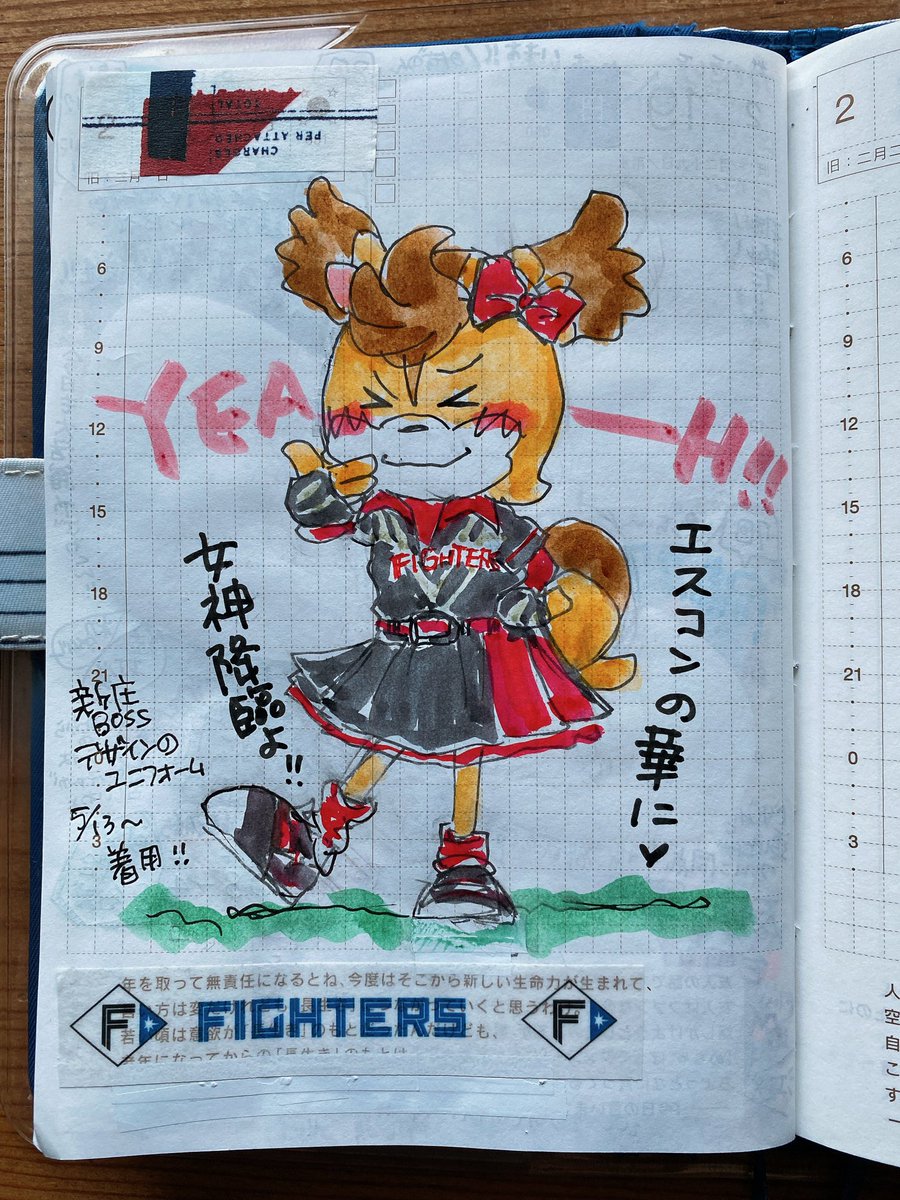 CHARGES
PER ATTACHED
TOTAL
2
旧：三月
6
9
12
15
18
21
3
YEA
H!!
FIGHTERS
エスコンの華に♥
女神降臨よ!!
新庄
BOSS
デザインの
ユニフォーム
5/13〜
着用!!
年を取って無責任になるとね、今度はそこから新しい生命力が生まれて、
いくと思う
若い頃は意欲が
のもと
ども、
老年になってからの「長生き」のもとは
F FIGHTERS F
2
旧：二月二
6
9
12
15
18
21
0
3
人
空
自
こ
す